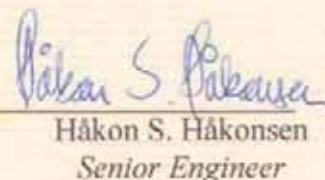 Håkon S. Håkonsen
Håkon S. Håkonsen
Senior Engineer